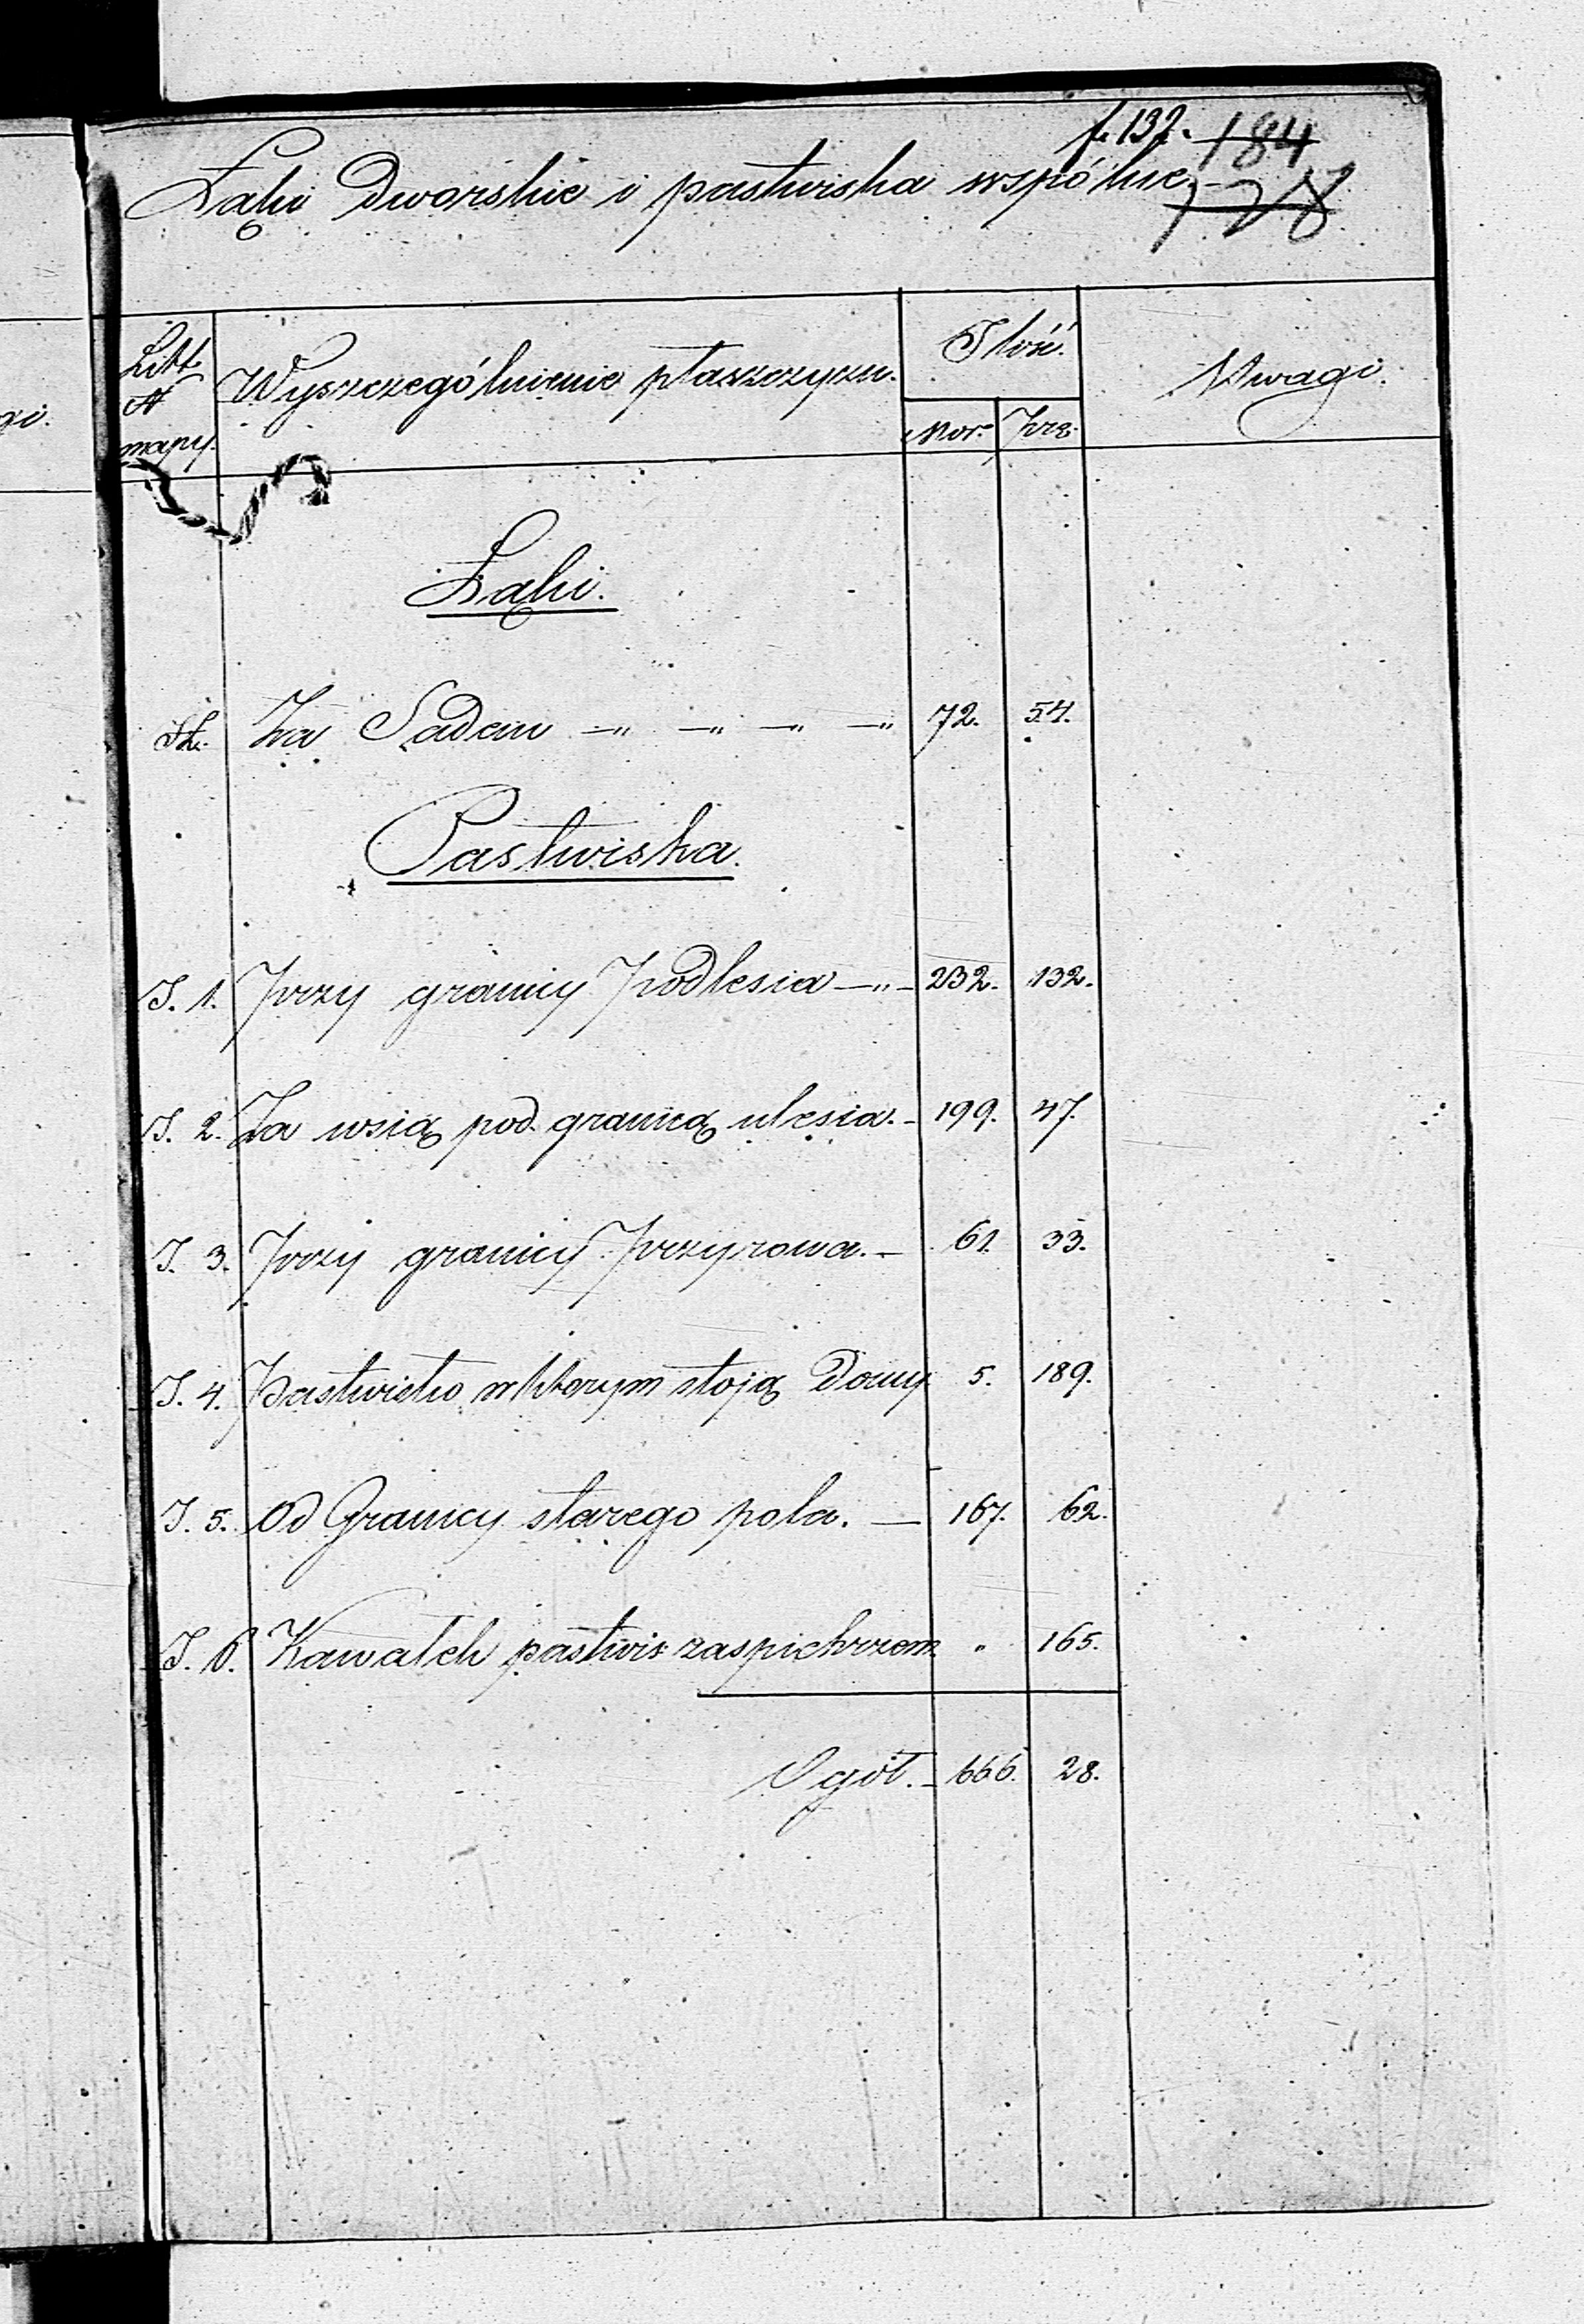 f. 132. 184
Łąki Dworskie i pastwiska wspólne.
178
Litt.
N
mapy.
Wyszczególnienie płaszczyzn.
Ilość.
Mor. Prę.
Uwagi.
gi.
Łąki.
Za Sadem —„ —„ —„ —„ 72. 54.
Pastwiska.
J. 1. Przy granicy Podlesia —„— 232. 132.
J. 2. Za wsią pod granicą ulesia. - 199. 47.
J. 3. Przy granicy Przyrowa. - 61. 33.
J. 4. Pastwisko w którym stoją Domy 5. 189.
J. 5. Od Granicy starego pola. — 167. 62.
J. 6. Kawałek pastwis: za spichrzem " 165.
Ogół. - 666. 28.